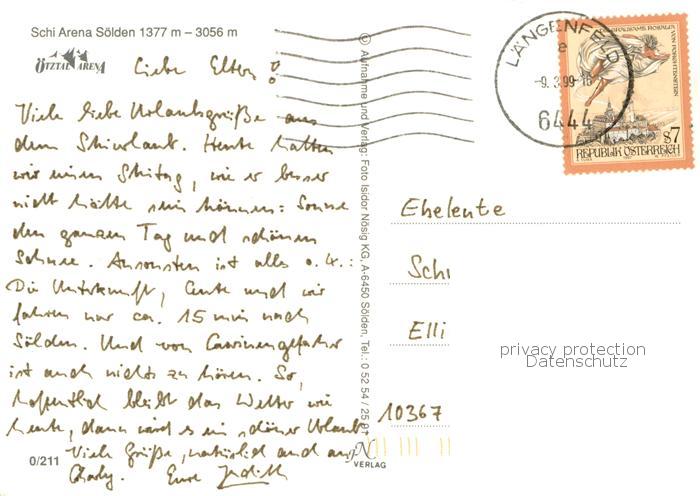 Schi Arena Sölden 1377 m – 3056 m
ÖTZTAL ARENA
Liebe Eltern!
Viele liebe Urlaubsgrüße aus
dem Skiurlaub. Heute hatten
wir einen Skitag, wie er besser
nicht hätte sein können: Sonne
den ganzen Tag und schönen
Schnee. Ansonsten ist alles o.k.:
Die Unterkunft, Leute und wir
fahren nur ca. 15 min nach
Sölden. Und von Lawinengefahr
ist auch nichts zu hören. So,
hoffentlich bleibt das Wetter wie
heute, dann wird es ein schöner Urlaub.
Viele Grüße, natürlich auch an
Eure Judith
0/211
© Aufnahme und Verlag: Foto Isidor Nösig KG, A-6450 Sölden, Tel.: 0 52 54 / 25
VERLAG
LÄNGENFELD
e
-9. 3.99-16
6444
ROSALIA VON FORCHTENSTEIN
S7
REPUBLIK ÖSTERREICH
Eheleute
Schi
Elli
10367
privacy protection
Datenschutz